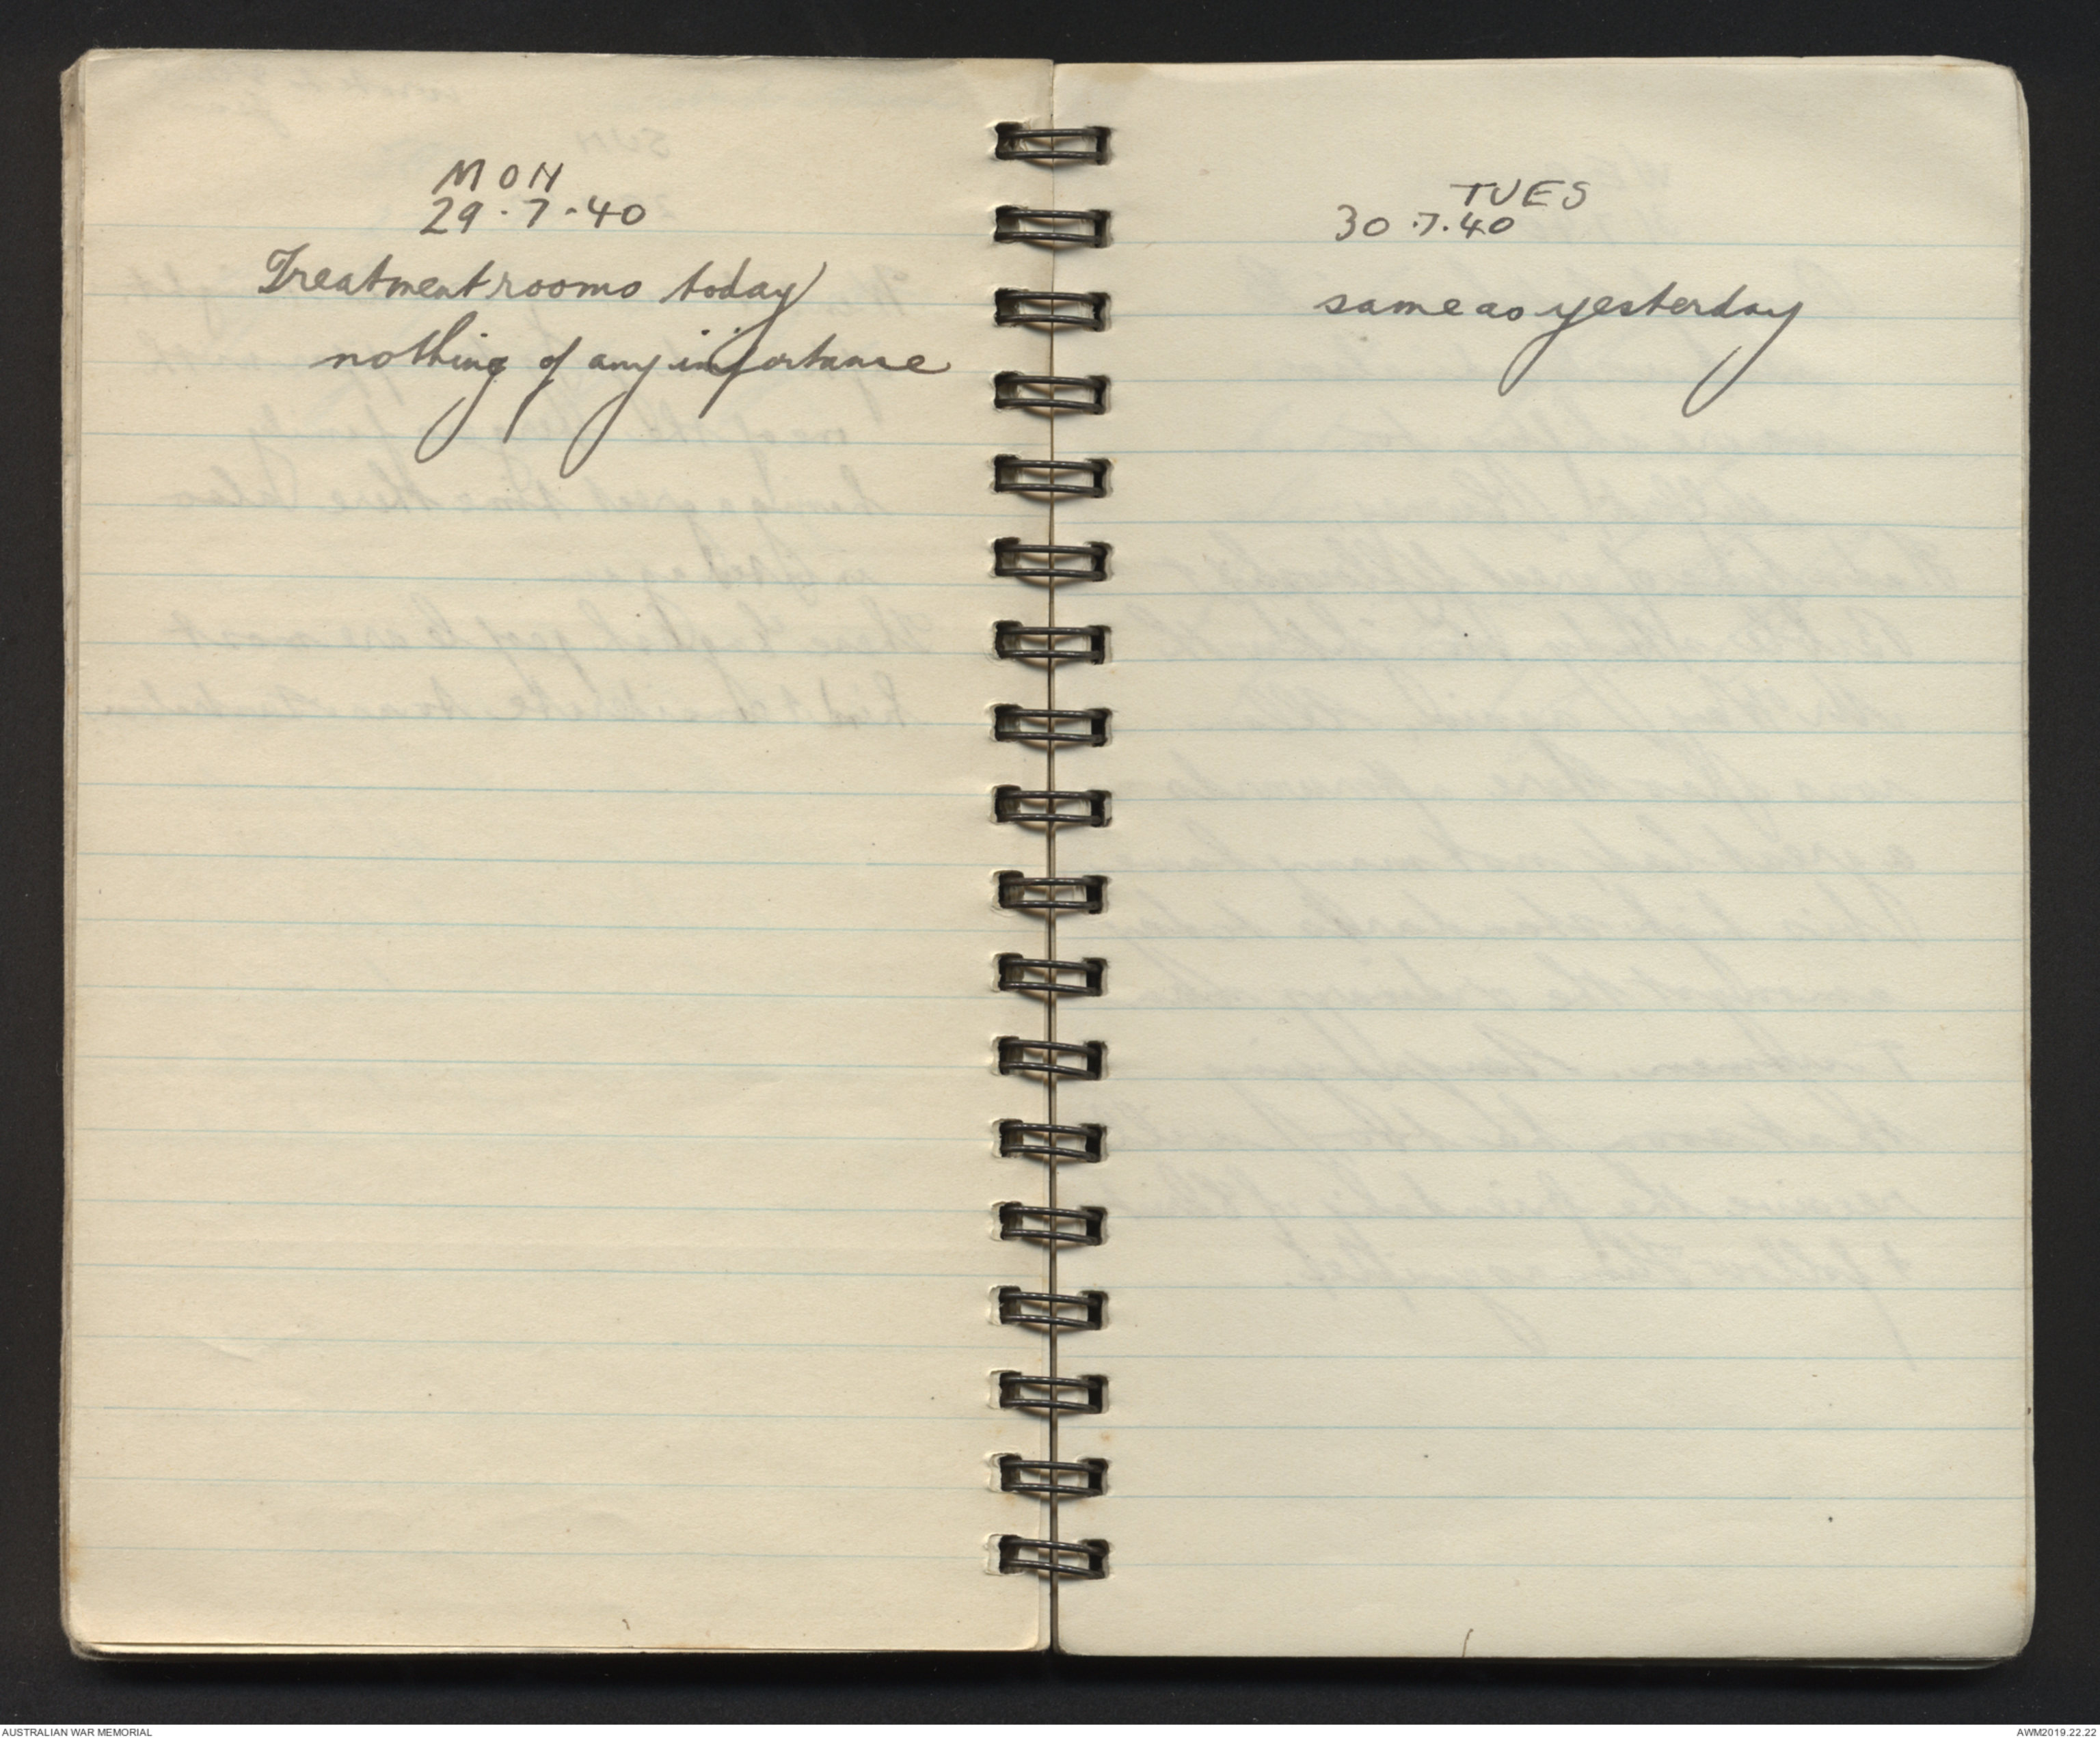 MON
29.7.40
Treatment rooms today
nothing of any importance
TUES
30.7.40
same as yesterday
AUSTRALIAN WAR MEMORIAL
AWM2019.22.22